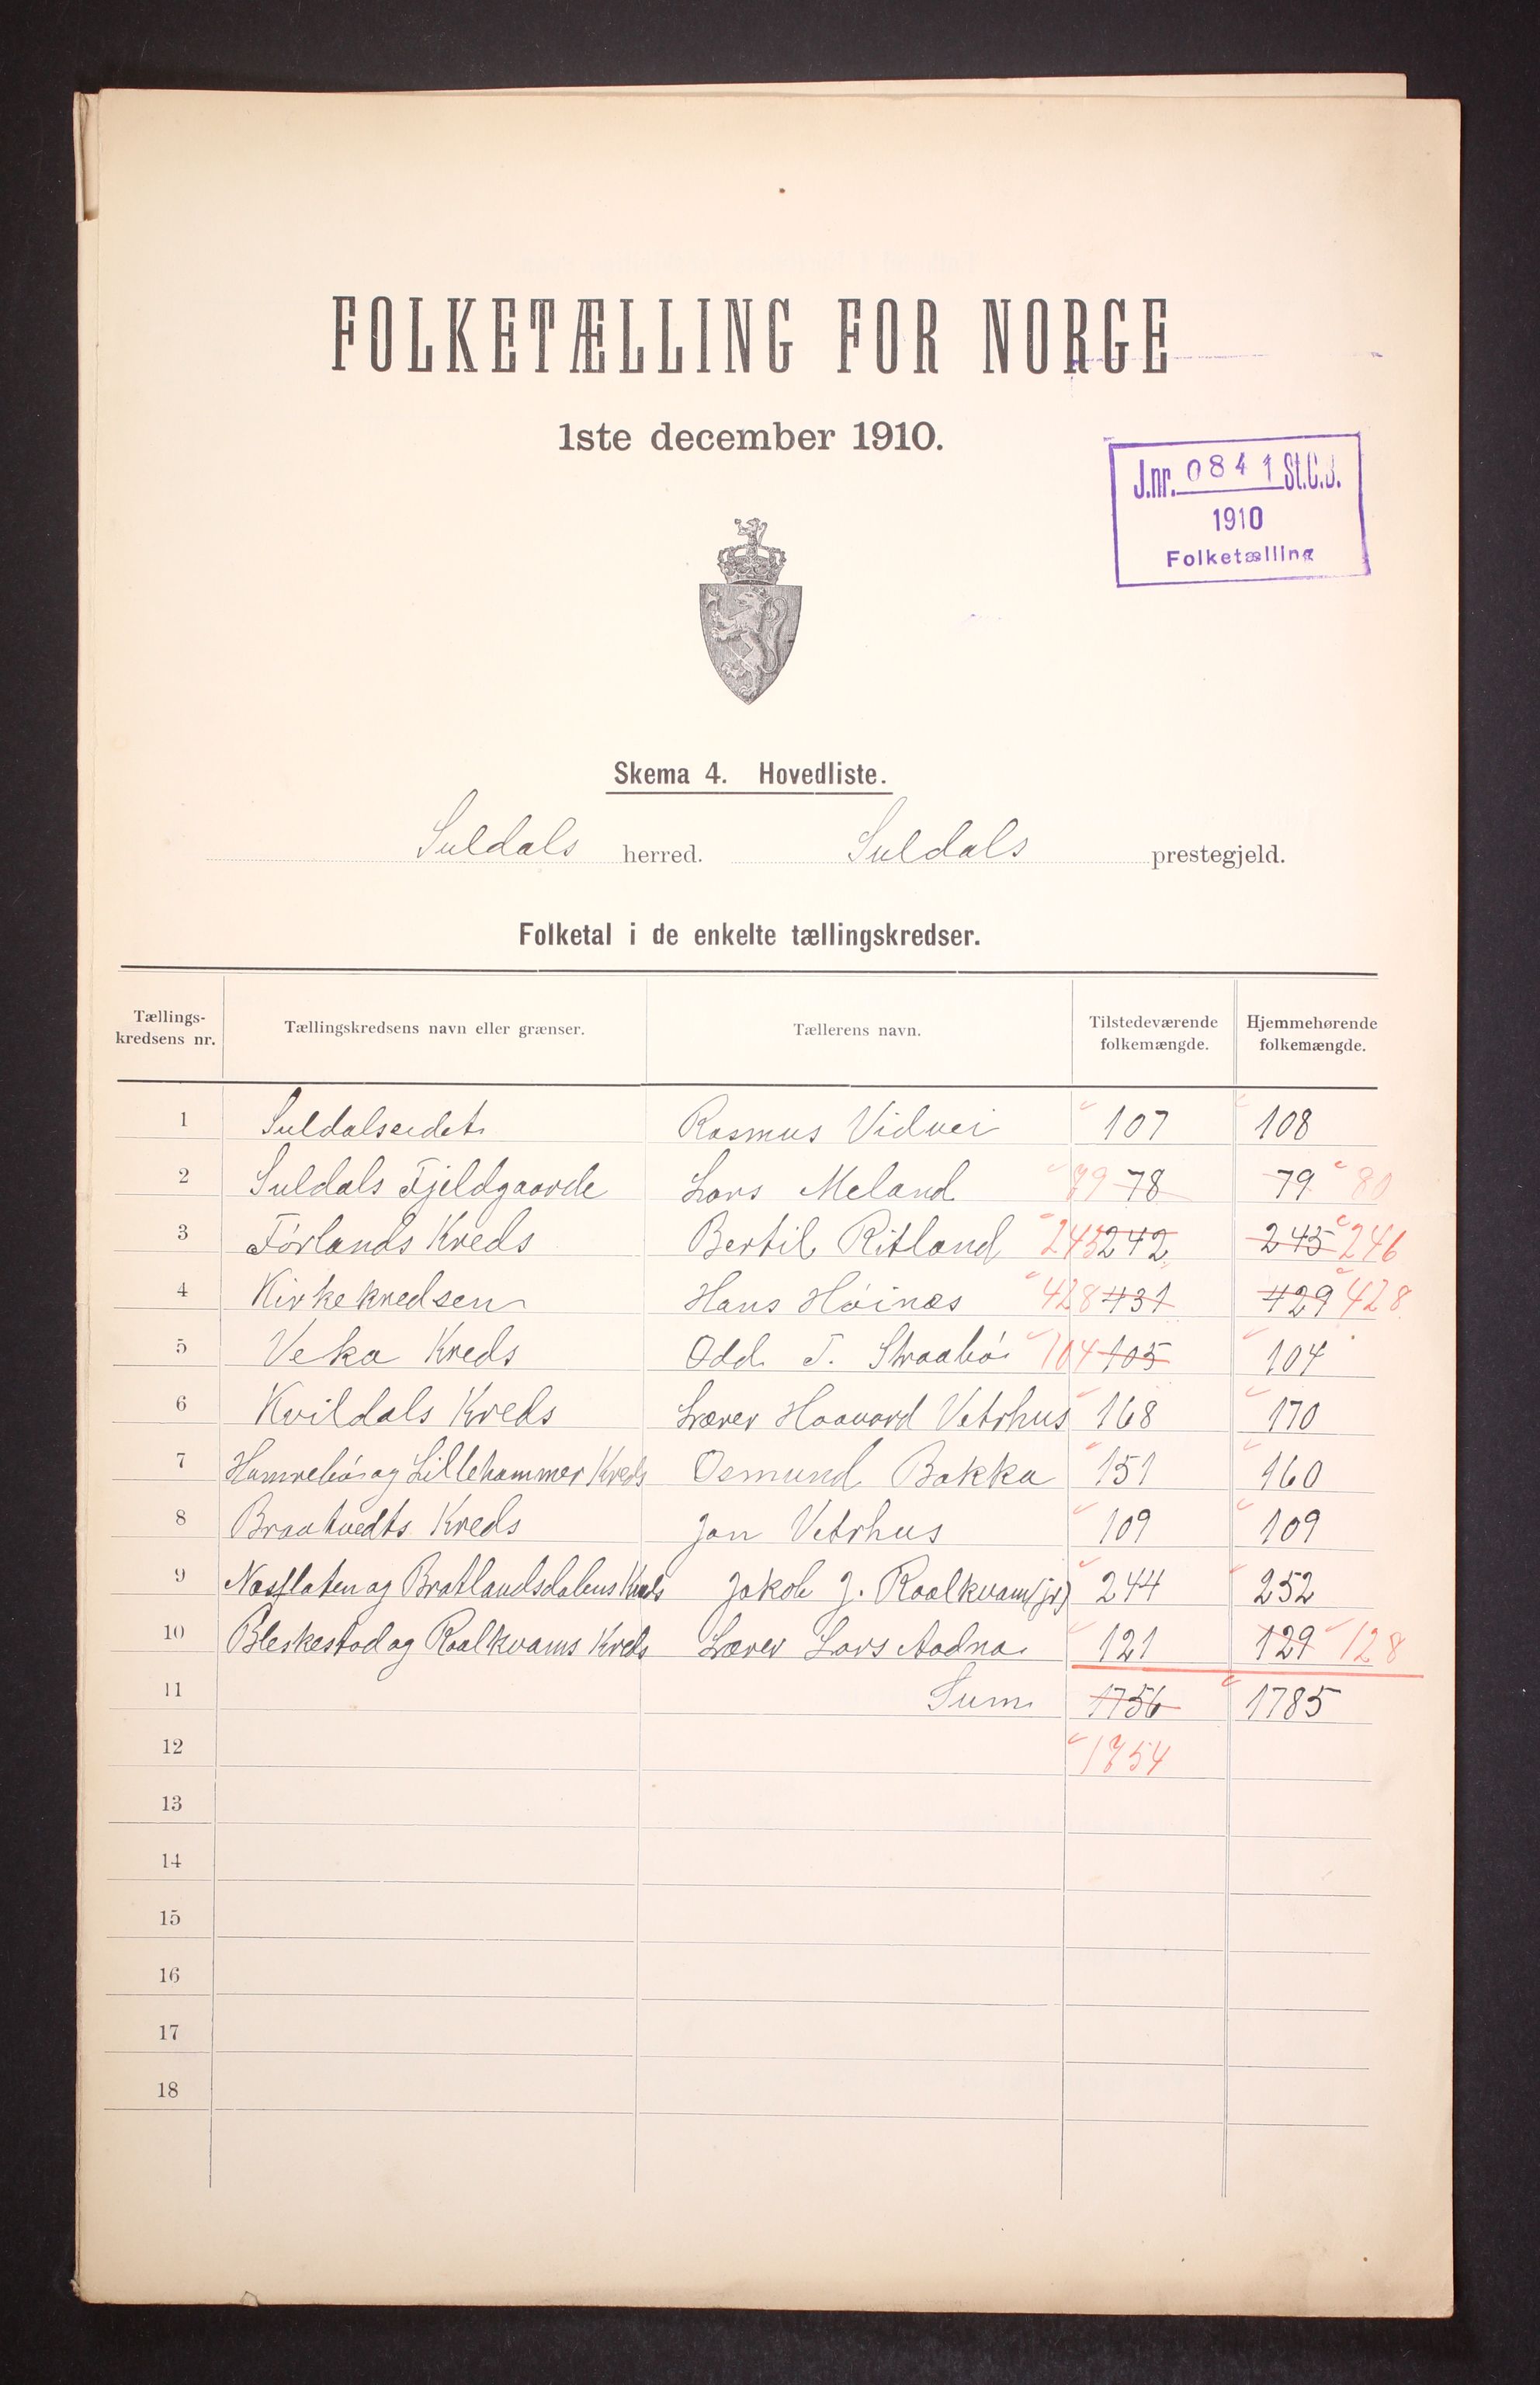 FOLKETÆLLING FOR NORGE
1ste december 1910.
J.nr. 0841 St.C.B.
1910
Folketælling
Skema 4. Hovedliste.
Suldals herred. Suldals prestegjeld.
Folketal i de enkelte tællingskredser.
Tællings-kredsens nr. Tællingskredsens navn eller grænser. Tællerens navn. Tilstedeværende folkemængde. Hjemmehørende folkemængde.
1 Suldalseidet Rasmus Vidvei 107 108
2 Suldals Fjeldgaarde Lars Meland 79 78 79 80
3 Førlands Kreds Bertil Ritland 243 242 245 246
4 Kirkekredsen Hans Høines 428 431 429 428
5 Veka Kreds Odd T. Straabø 104 105 104
6 Kvildals Kreds Lærer Haavard Vetrhus 168 170
7 Hamrebø og Lillehammer Kreds Osmund Bakka 151 160
8 Braatvedts Kreds Jon Vetrhus 109 109
9 Næsflaten og Bratlandsdalens Kreds Jakob J. Roalkvam (jr) 244 252
10 Bleskestad og Roalkvams Kreds Lærer Lars Aadna 121 129 128
11 Sum 1756 1785
12 1754
13
14
15
16
17
18